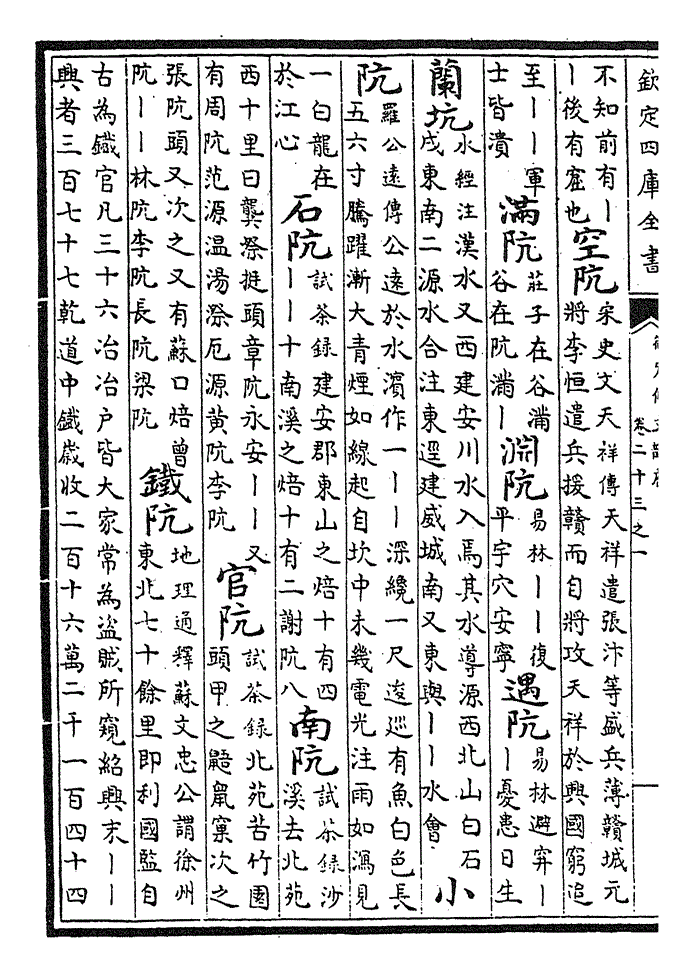 欽定四庫全書
卷二十三之一
不知前有｜
｜後有窞也
空阬
宋史文天祥傳天祥遣張汴等盛兵薄贛城元
將李恒遣兵援贛而自將攻天祥於興國窮追
至｜｜軍
士皆潰
滿阬
莊子在谷滿
谷在阬滿｜
淵阬
易林｜｜復
平宇穴安寧
遇阬
易林避穽｜
｜憂患日生
蘭坑
水經注漢水又西建安川水入焉其水導源西北山白石
戍東南二源水合注東逕建威城南又東與｜｜水會
小阬
羅公遠傳公遠於水濵作一｜｜深纔一尺逡巡有魚白色長
五六寸騰躍漸大青煙如線起自坎中未幾電光注雨如瀉見
一白龍在
於江心
石阬
試茶錄建安郡東山之焙十有四
｜｜十南溪之焙十有二謝阬八
南阬
試茶錄沙
溪去北苑
西十里曰龔漈挺頭章阬永安｜｜又
有周阬范源温湯漈厄源黄阬李阬
官阬
試茶錄北苑苦竹園
頭甲之鼯鼠窠次之
張阬頭又次之又有蘇口焙曾
阬｜｜林阬李阬長阬梁阬
鐵阬
地理通釋蘇文忠公謂徐州
東北七十餘里即利國監自
古為鐵官凡三十六冶冶户皆大家常為盗賊所窺紹興末｜｜
興者三百七十七乾道中鐵嵗收二百十六萬二千一百四十四